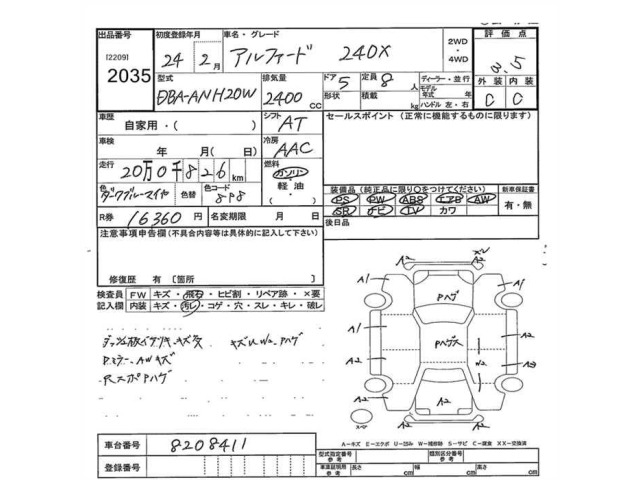 出品番号
[2209]
2035
初度登録年月
24年 2月
車名・グレード
アルファード 240X
2WD
・
4WD
評価点
3.5
型式
DBA-ANH20W
排気量
2400 CC
ドア 5
形状
定員 8 人
積載 kg
ディーラー・並行
モデル
年式 年
ハンドル 左・右
外装 内装
C C
車歴
自家用・( )
シフト
AT
セールスポイント (正常に機能するものに限ります)
車検
年 月(日)
冷房
AAC
走行
20万0千826km
燃料
ガソリン
・
軽油
・
色
ダークブルーマイカ
色替
色コード
8P8
装備品 (純正品に限り○をつけてください)
PS PW ABS エアB AW
SR ナビ TV カワ
新車保証書
有・無
R券 16360 円
名変期限 月 日
後日品
注意事項申告欄 (不具合内容等は具体的に記入して下さい)
修復歴 有〔箇所 〕
検査員
記入欄
FW キズ・飛石・ヒビ割・リペア跡・×要
内装 キズ・汚レ・コゲ・穴・スレ・キレ・破レ
キズ W2、Pハゲ
P.ミラー、AWキズ
RスポPハゲ
ズレ
A2 A2
A1 A1
Pハゲ
A1 A1
Pハゲス
W2
A2 A2
A2 A2
A2
スペア
A-キズ E-エクボ U-凹み W-補修跡 S-サビ C-腐食 XX-交換済
車台番号 8208411
登録番号
型式指定番号
参考
類別区分番号
参考
車庫証明用
参考
長さ cm 幅 cm 高さ cm